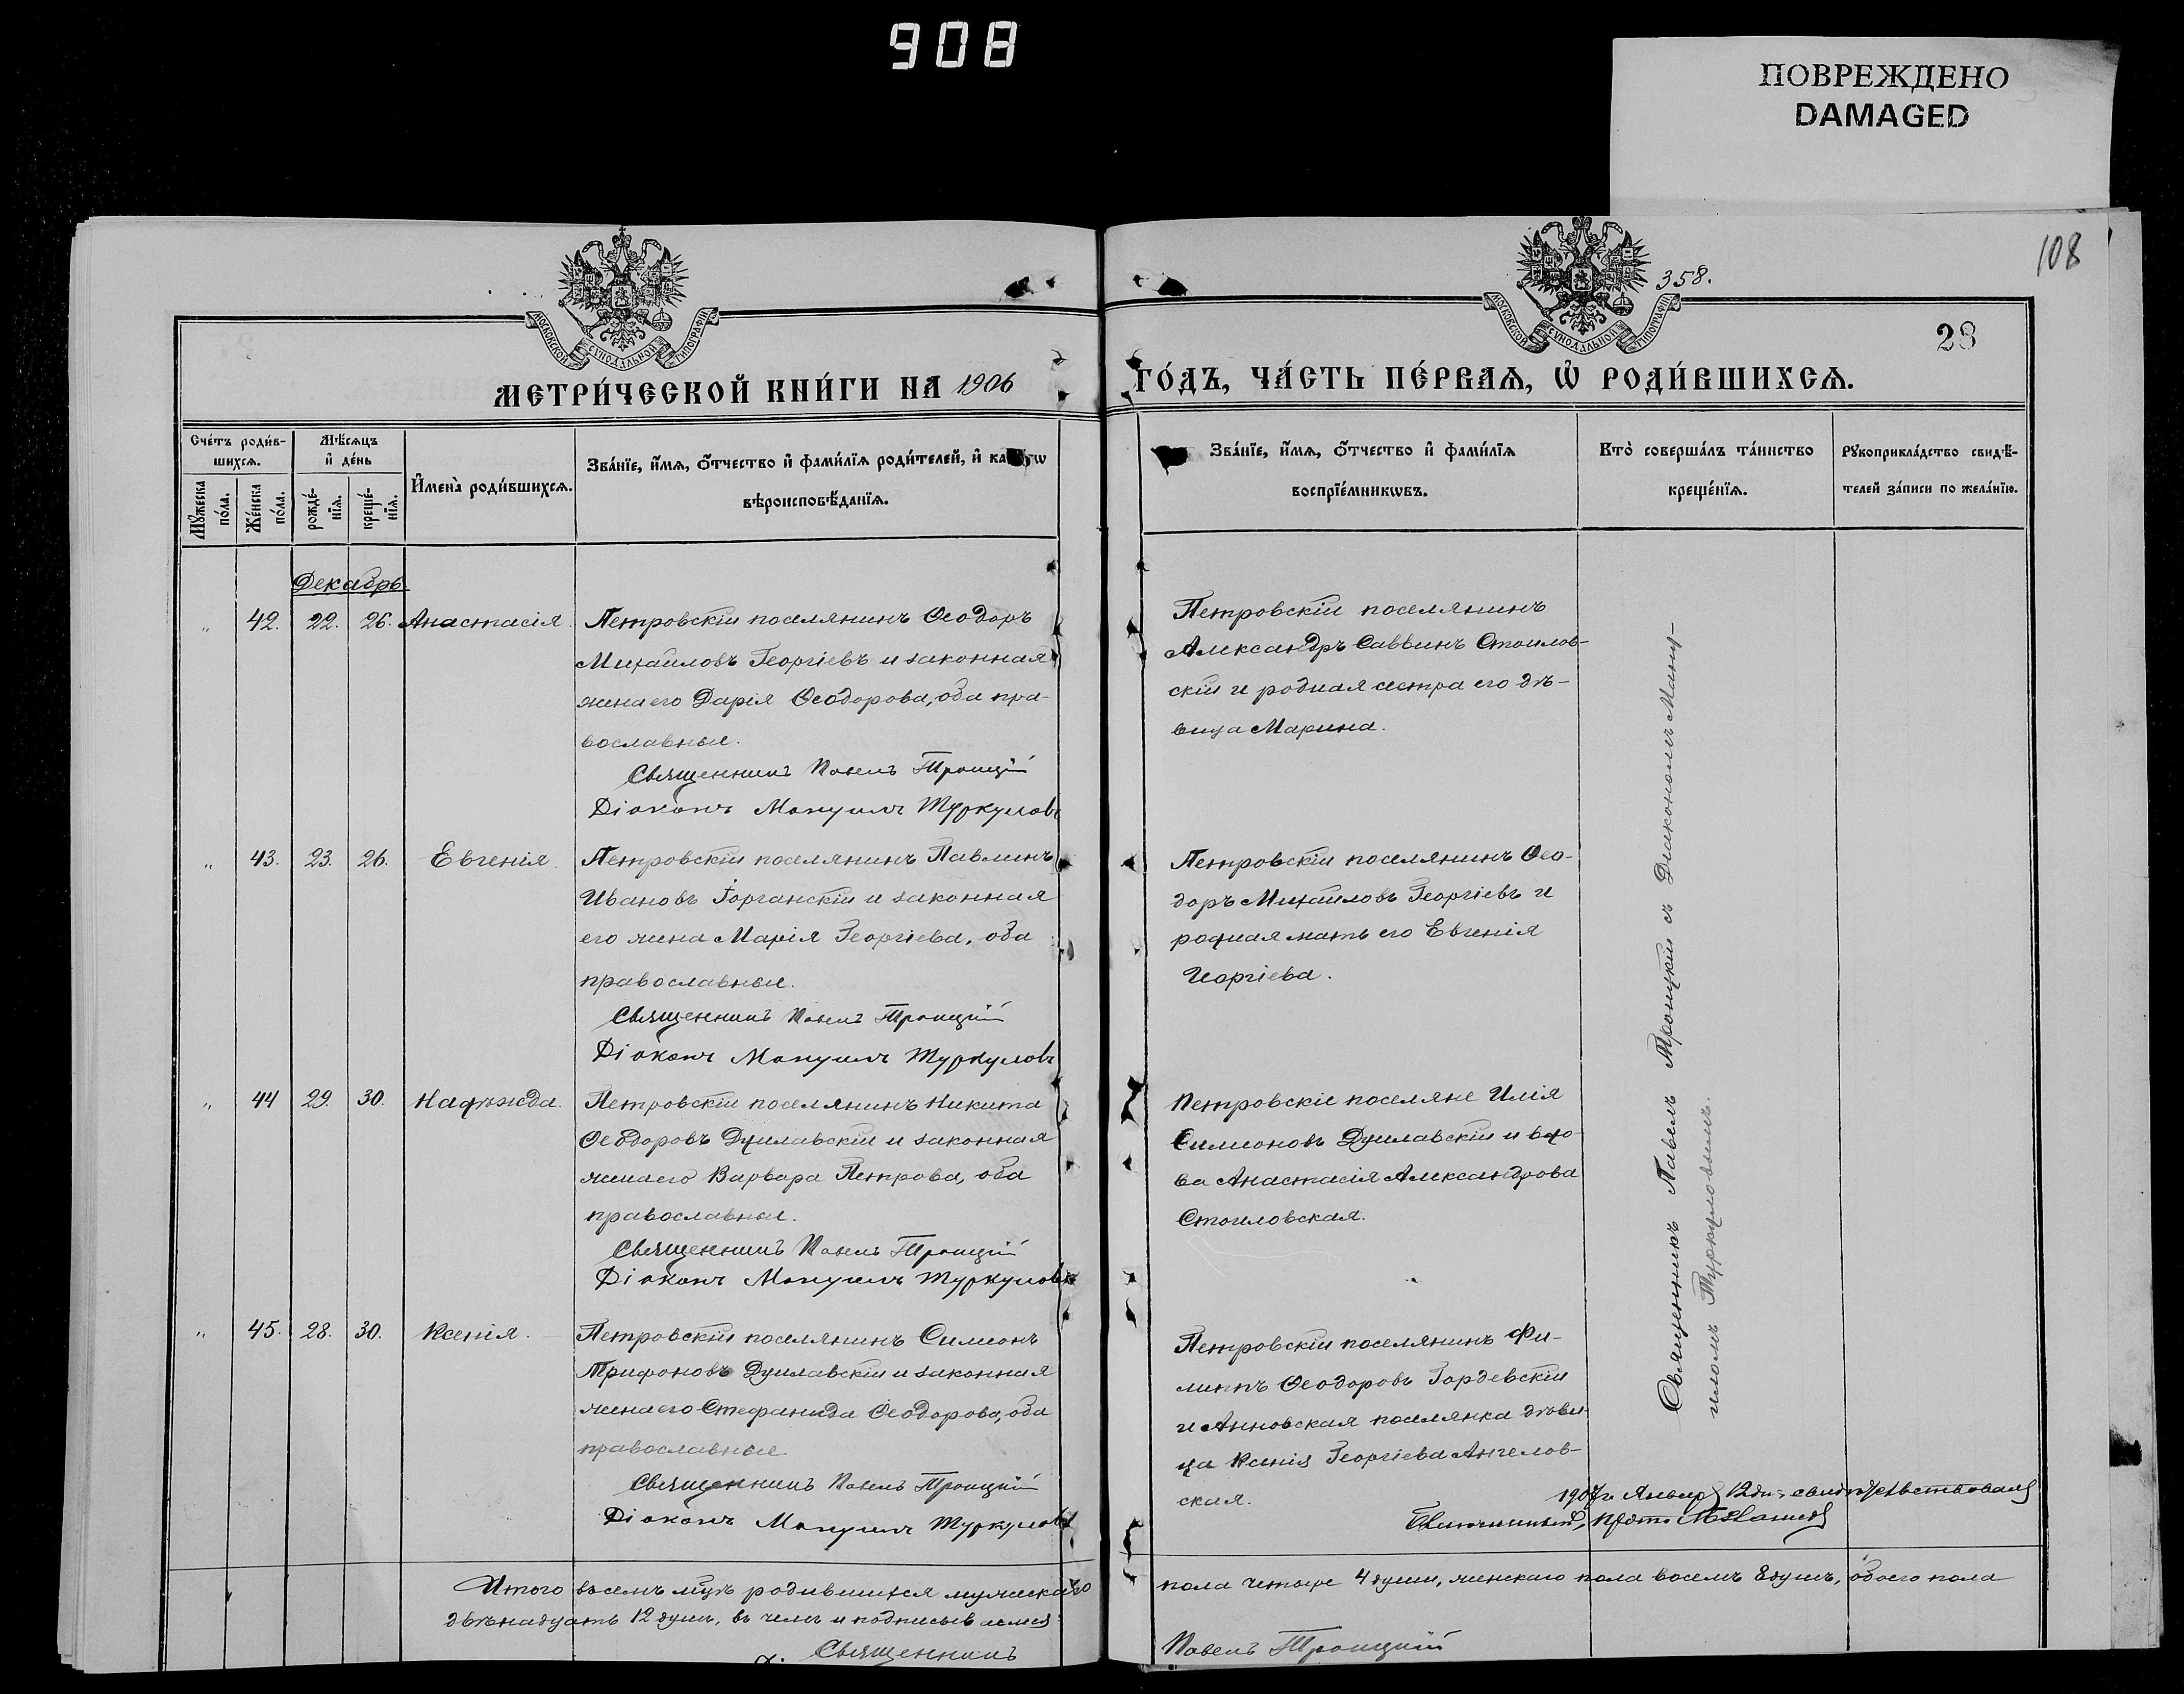 908
ПОВРЕЖДЕНО
DAMAGED
108
358.
28
МОСКОВСКОЙ СѴНОДАЛЬНОЙ ТИПОГРАФІИ
МОСКОВСКОЙ СѴНОДАЛЬНОЙ ТИПОГРАФІИ
МЕТРИ́ЧЕСКОЙ КНИ́ГИ НА 1906
ГО́ДЪ, ЧА́СТЬ ПЕ́РВАѦ, Ѡ҆ РОДИ́ВШИХСѦ.
Сче́тъ роди́в-
шихсѧ.
Мꙋ́жеска по́ла.
Же́нска по́ла.
Мѣ́сѧцъ
и҆ де́нь
рожде́-
нїѧ.
креще́-
нїѧ.
И҆мена̀ роди́вшихсѧ.
Зва́нїе, и҆́мѧ, ѻ҆́тчество и҆ фами́лїѧ роди́телей, и҆
вѣроисповѣ́данїѧ.
Зва́нїе, и҆́мѧ, ѻ҆́тчество и҆ фами́лїѧ
воспрїе́мникѡвъ.
Кто̀ соверша́лъ та́инство
креще́нїѧ.
Рꙋкоприкла́дство свидѣ́-
телей за́писи по жела́нїю.
Декабрь.
„ 42. 22. 26. Анастасія.
Петровскій поселянинъ Ѳеодоръ
Михайловъ Георгіевъ и законная
жена его Дарія Ѳеодорова, оба пра-
вославные.
Священникъ Павелъ Троицкій
Діаконъ Мануилъ Туркуловъ
Петровскій поселянинъ
Александръ Саввинъ Стоилов-
скій и родная сестра его дѣ-
вица Марина.
„ 43. 23. 26. Евгенія.
Петровскій поселянинъ Павлинъ
Ивановъ Горганскій и законная
его жена Марія Георгіева, оба
православные.
Священникъ Павелъ Троицкій
Діаконъ Мануилъ Туркуловъ
Петровскій поселянинъ Ѳео-
доръ Михайловъ Георгіевъ и
родная мать его Евгенія
Георгіева.
„ 44 29. 30. Надежда.
Петровскій поселянинъ Никита
Ѳеодоровъ Душлавскій и законная
жена его Варвара Петрова, оба
православные.
Священникъ Павелъ Троицкій
Діаконъ Мануилъ Туркуловъ
Петровскіе поселяне Илія
Симеоновъ Душлавскій и вдо-
ва Анастасія Александрова
Стоиловская.
„ 45. 28. 30. Ксенія.
Петровскій поселянинъ Симеонъ
Трифоновъ Душлавскій и законная
жена его Стефанида Ѳеодорова, оба
православные.
Священникъ Павелъ Троицкій
Діаконъ Мануилъ Туркуловъ
Петровскій поселянинъ Фи-
липпъ Ѳеодоровъ Гордевскій
и Анновская поселянка дѣви-
ца Ксенія Георгіева Ангелов-
ская.
Священникъ Павелъ Троицкій съ Діакономъ Ману-
иломъ Туркуловымъ.
1907 г. Января 12 дня свидѣтельствовалъ
Благочинный, Прот.
Итого въ семъ м-цѣ родившихся мужескаго пола четыре 4 души, женскаго пола восемь 8 душъ, обоего пола
двѣнадцать 12 душъ, въ чемъ и подписываемся
Священникъ Павелъ Троицкій